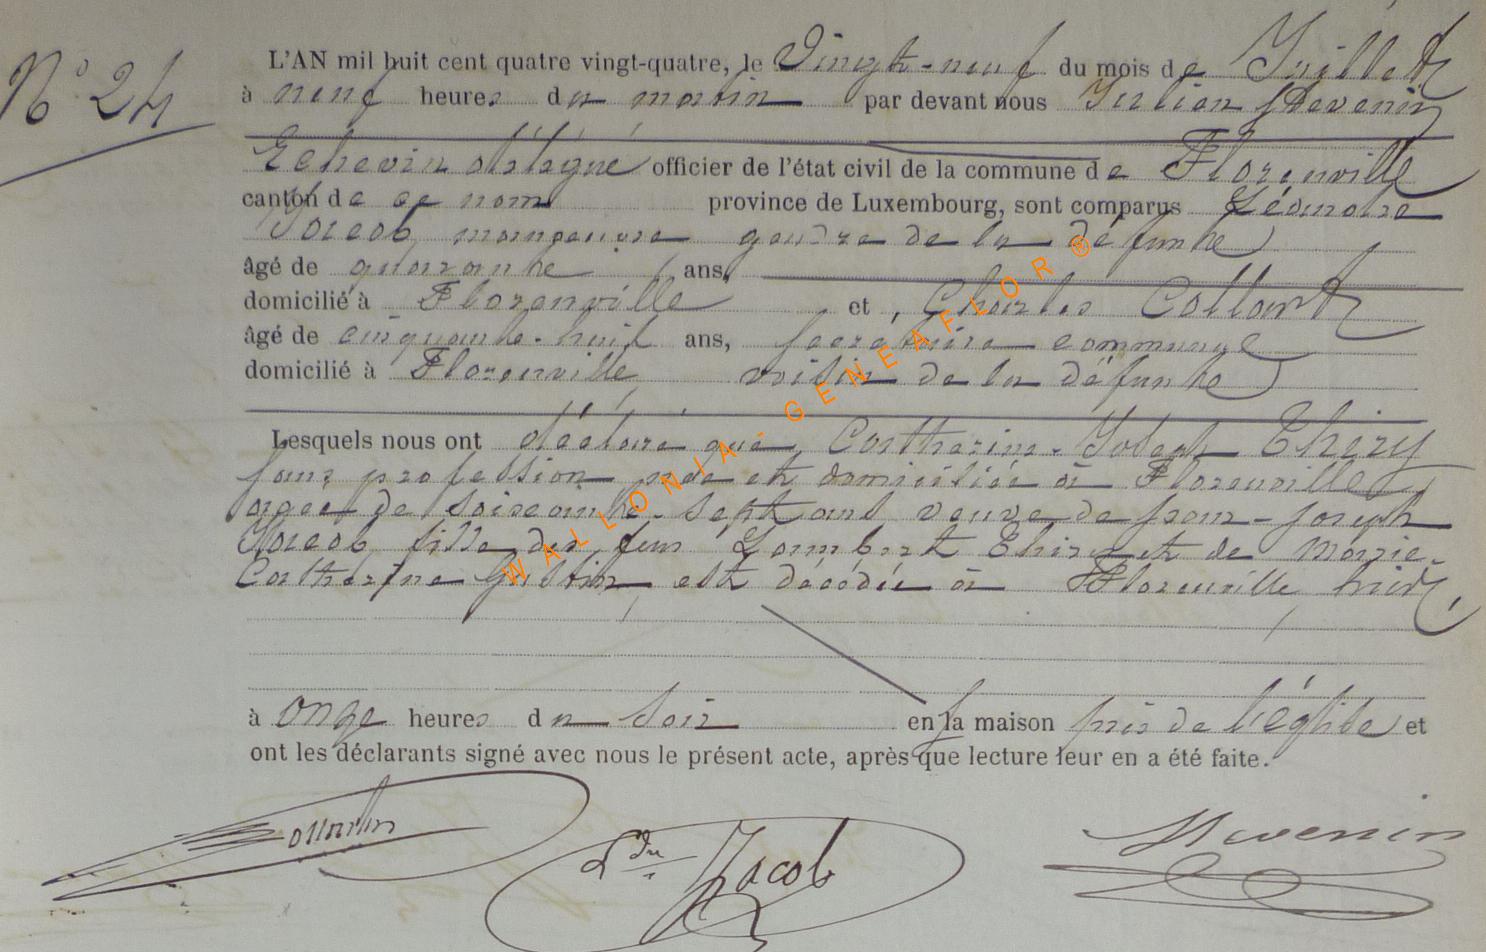 N° 24
L'AN mil huit cent quatre vingt-quatre, le Vingt-neuf du mois de Juillet
à neuf heures du matin par devant nous Julien Devenin
Echevin délégué officier de l'état civil de la commune de Florenville
canton de ce nom province de Luxembourg, sont comparus Léonore
Jacob, manoeuvre gendre de la défunte
âgé de quarante ans,
domicilié à Florenville et Charles Collard
âgé de cinquante-huit ans, secrétaire communal
domicilié à Florenville voisin de la défunte
Lesquels nous ont déclaré que Catherine-Joseph Thiry
sans profession née et domiciliée à Florenville
agée de soixante-sept ans veuve de Jean-Joseph
Jacob fille des feus Lambert Thiry et de Marie
Catherine est décédée à Florenville hier,
à onze heures du soir en sa maison près de l'église et
ont les déclarants signé avec nous le présent acte, après que lecture leur en a été faite.
Jacob
WALLONIA-GENEAFLOR®